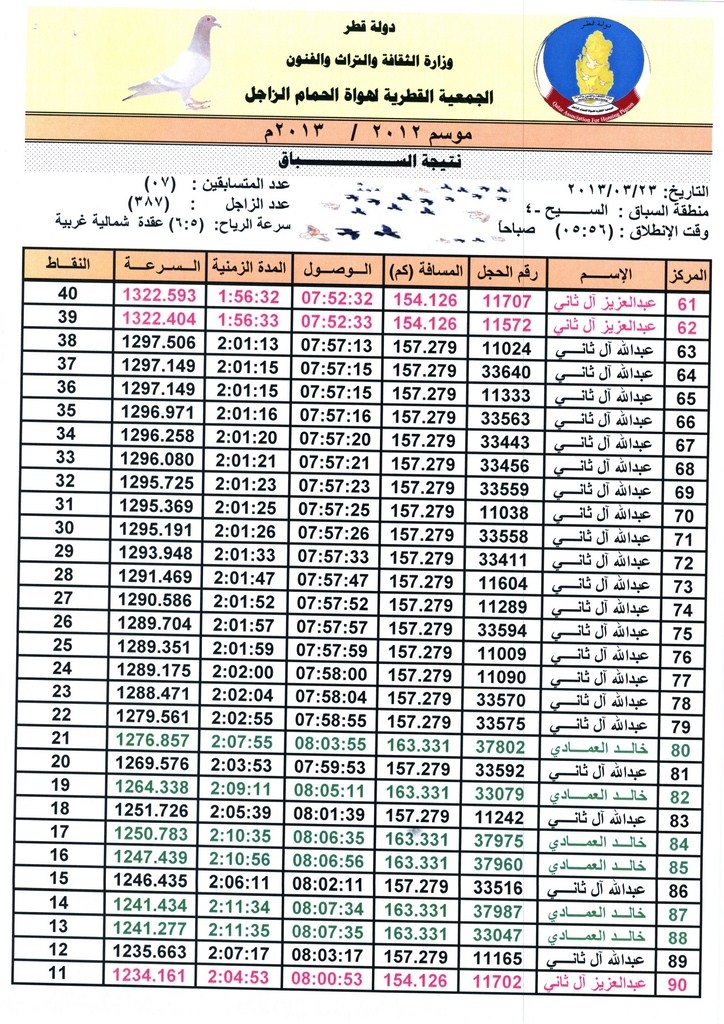 دولة قطر
وزارة الثقافة والتراث والفنون
الجمعية القطرية لهواة الحمام الزاجل
دولة قطر
Qatar Association For Homing Pigeon
موسم ٢٠١٢ / ٢٠١٣م
نتيجة الســـــــــباق
التاريخ: ٢٠١٣/٠٣/٢٣
منطقة السباق : الســـيح -٤
وقت الإنطلاق : (٠٥:٥٦) صباحاً
عدد المتسابقين : (٠٧)
عدد الزاجل : (٣٨٧)
سرعة الرياح: (٦:٥) عقدة شمالية غربية
المركز الإســـم رقم الحجل المسافة (كم) الـوصـول المدة الزمنية الـسـرعـة النقاط
61 عبدالعزيز آل ثاني 11707 154.126 07:52:32 1:56:32 1322.593 40
62 عبدالعزيز آل ثاني 11572 154.126 07:52:33 1:56:33 1322.404 39
63 عبدالله آل ثانـــي 11024 157.279 07:57:13 2:01:13 1297.506 38
64 عبدالله آل ثانـــي 33640 157.279 07:57:15 2:01:15 1297.149 37
65 عبدالله آل ثانـــي 11333 157.279 07:57:15 2:01:15 1297.149 36
66 عبدالله آل ثانـــي 33563 157.279 07:57:16 2:01:16 1296.971 35
67 عبدالله آل ثانـــي 33443 157.279 07:57:20 2:01:20 1296.258 34
68 عبدالله آل ثانـــي 33456 157.279 07:57:21 2:01:21 1296.080 33
69 عبدالله آل ثانـــي 33559 157.279 07:57:23 2:01:23 1295.725 32
70 عبدالله آل ثانـــي 11038 157.279 07:57:25 2:01:25 1295.369 31
71 عبدالله آل ثانـــي 33558 157.279 07:57:26 2:01:26 1295.191 30
72 عبدالله آل ثانـــي 33411 157.279 07:57:33 2:01:33 1293.948 29
73 عبدالله آل ثانـــي 11604 157.279 07:57:47 2:01:47 1291.469 28
74 عبدالله آل ثانـــي 11289 157.279 07:57:52 2:01:52 1290.586 27
75 عبدالله آل ثانـــي 33594 157.279 07:57:57 2:01:57 1289.704 26
76 عبدالله آل ثانـــي 11009 157.279 07:57:59 2:01:59 1289.351 25
77 عبدالله آل ثانـــي 11090 157.279 07:58:00 2:02:00 1289.175 24
78 عبدالله آل ثانـــي 33570 157.279 07:58:04 2:02:04 1288.471 23
79 عبدالله آل ثانـــي 33575 157.279 07:58:55 2:02:55 1279.561 22
80 خالـــد العمـــادي 37802 163.331 08:03:55 2:07:55 1276.857 21
81 عبدالله آل ثانـــي 33592 157.279 07:59:53 2:03:53 1269.576 20
82 خالـــد العمـــادي 33079 163.331 08:05:11 2:09:11 1264.338 19
83 عبدالله آل ثانـــي 11242 157.279 08:01:39 2:05:39 1251.726 18
84 خالـــد العمـــادي 37975 163.331 08:06:35 2:10:35 1250.783 17
85 خالـــد العمـــادي 37960 163.331 08:06:56 2:10:56 1247.439 16
86 عبدالله آل ثانـــي 33516 157.279 08:02:11 2:06:11 1246.435 15
87 خالـــد العمـــادي 37987 163.331 08:07:34 2:11:34 1241.434 14
88 خالـــد العمـــادي 33047 163.331 08:07:35 2:11:35 1241.277 13
89 عبدالله آل ثانـــي 11165 157.279 08:03:17 2:07:17 1235.663 12
90 عبدالعزيز آل ثاني 11702 154.126 08:00:53 2:04:53 1234.161 11